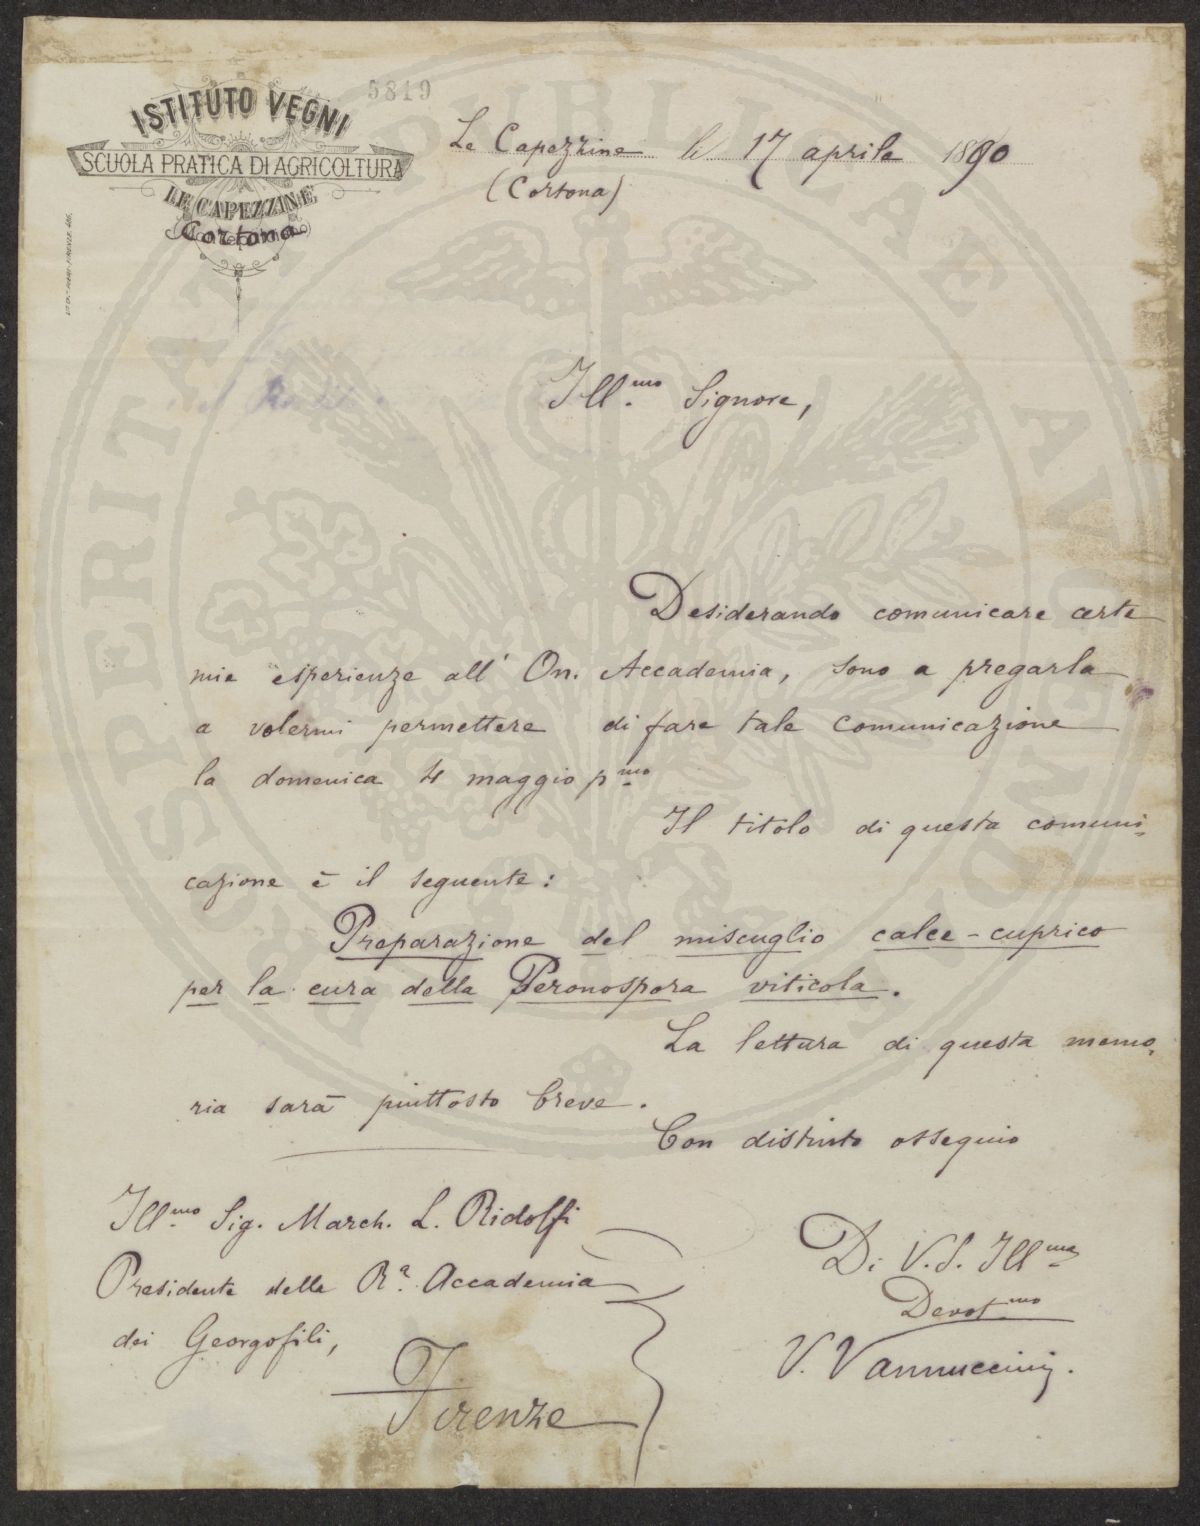 5819
ISTITUTO VEGNI
SCUOLA PRATICA DI AGRICOLTURA
LE CAPEZZINE
Cortona
Le Capezzine li 17 aprile 1890
(Cortona)
Ill.mo Signore,
Desiderando comunicare certe
mie esperienze all' On. Accademia, sono a pregarla
a volermi permettere di fare tale comunicazione
la domenica 4 maggio p.mo
Il titolo di questa comuni-
cazione è il seguente:
Preparazione del miscuglio calce-cuprico
per la cura della Peronospora viticola.
La lettura di questa memo-
ria sarà piuttosto breve.
Con distinto ossequio
Ill.mo Sig. March. L. Ridolfi
Presidente della R.a Accademia
dei Georgofili,
Firenze
Di V.S. Ill.ma
Devot.mo
V. Vannuccini.
PROSPERITATI PUBLICAE AUGENDAE